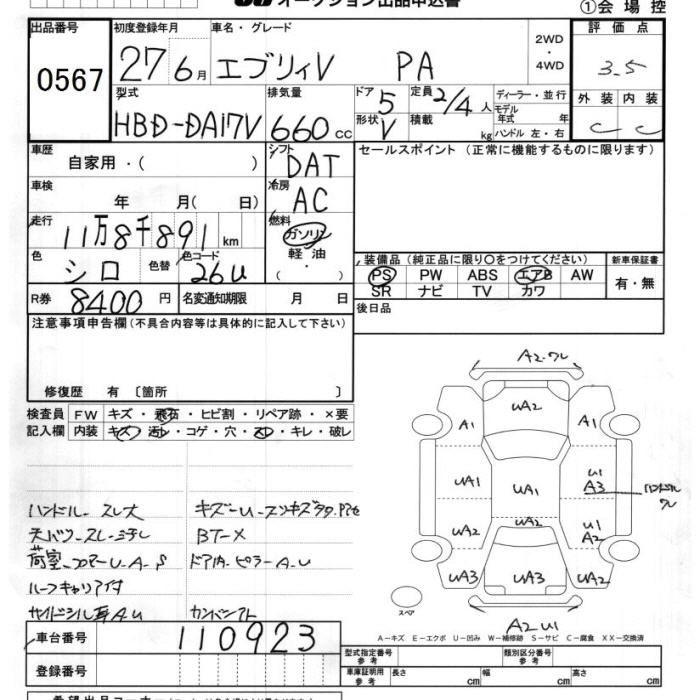 オークション出品申込書
①会場控
出品番号
0567
初度登録年月
27 6月
車名・グレード
エブリィV PA
2WD
・
4WD
評価点
3.5
外装 内装
C C
型式
HBD-DA17V
排気量
660cc
ドア 5
形状 V
定員 2/4人
積載 kg
ディーラー・並行
モデル年式 年
ハンドル 左・右
車歴
自家用・( )
シフト
DAT
セールスポイント (正常に機能するものに限ります)
車検
年 月( 日)
冷房
AC
走行
11万8千891km
燃料
ガソリン
軽油
・
( )
色
シロ
色替
色コード
26U
装備品(純正品に限り○をつけてください)
PS PW ABS エアB AW
SR ナビ TV カワ
新車保証書
有・無
R券 8400円
名変通知期限 月 日
後日品
注意事項申告欄(不具合内容等は具体的に記入して下さい)
修復歴 有〔箇所 〕
検査員記入欄
FW キズ・飛石・ヒビ割・リペア跡・×要
内装 キズ・汚レ・コゲ・穴・スレ・キレ・破レ
ハンドル-スレ大
天バリ-スレ-
BT-X
荷室-
ドア内・ピラーA-U
ルーフキャリア付
サイドシル
A2-ワレ
UA2
A1 A1
UA1 UA1 U1 A3
ハンドルワレ
UA2 UA2 U1 A2
UA3 UA3 UA2
A2U1
スペア
A-キズ E-エクボ U-凹み W-補修跡 S-サビ C-腐食 XX-交換済
車台番号 110923
登録番号
型式指定番号 参考
類別区分番号 参考
車庫証明用 参考
長さ cm 幅 cm 高さ cm